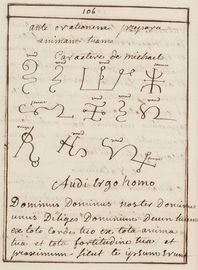 106
ante orationem prepara
animam tuam
Caractere de michael
Audi Ergo homo
Dominus Dominus noster Dominus
unus Diliges Dominum deum tuum
ex toto corde tuo ex tota anima
tua et tota fortitudine tua et
proximum sicut te ipsum Erunt